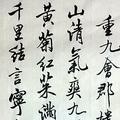 重九會郡樓
山清氣爽九
黃菊紅茱滿
千里結言寧